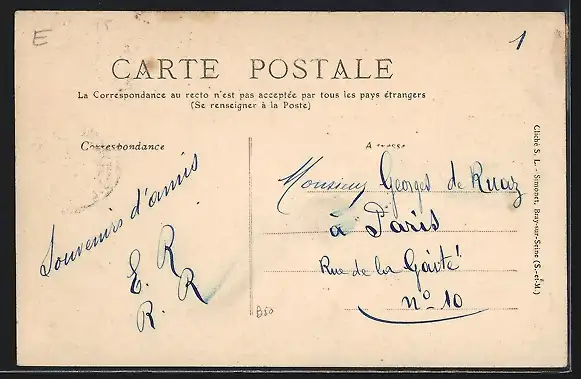 E
1
CARTE POSTALE
La Correspondance au recto n'est pas acceptée par tous les pays étrangers
(Se renseigner à la Poste)
Correspondance
Adresse
Souvenirs d'amis
E. R
R. R
Monsieur Georges de Ruaz
à Paris
Rue de la Gaité
n° 10
B50
Cliché S. L. - Simonet, Bray-sur-Seine (S.-et-M.)